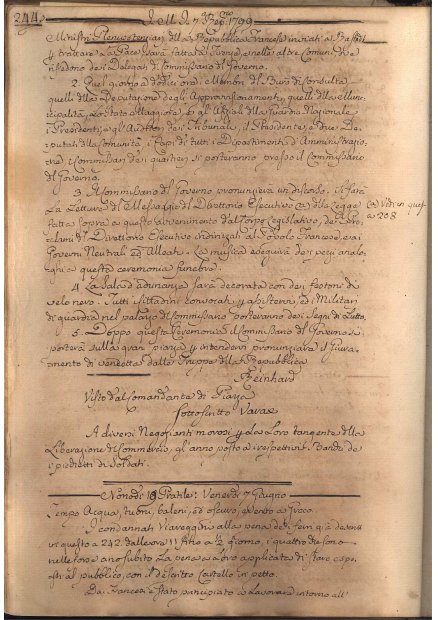 244.
1799
Ministri Plenipotenziari della Repubblica Francese inviati a Rastadt
per trattare la Pace, sarà fatta a Firenze, e nelle altre Comuni dove
risiedono dei Delegati del Commissario di Governo.
2. Quel giorno a dodici ore i Membri del Burò di Consulta,
quelli della Deputazione degli Approvvisionamenti, quelli della Muni-
cipalità, lo Stato Maggiore, e gli Ufiziali della Guardia Nazionale
i Presidenti, e gli Auditori dei Tribunali, il Presidente, e due De-
putati della Comunità, i Capi di tutti i Dipartimenti d'Amministrazio-
ne, i Commissari dei quartieri si porteranno presso il Commissario
di Governo.
3. Il Commissario del Governo pronunzierà un discorso. Si farà
la Lettura del Messaggio del Direttorio Esecutivo, della Legge
fatta sopra a questo avvenimento dal Corpo Legislativo, dei Pro-
clami del Direttorio Esecutivo indirizzati al Popolo Francese, e ai
Governi Neutrali ed Alleati. La musica eseguirà dei pezzi analo-
ghi a questa ceremonia funebre.
(a) Vedi in questo
a 208
4. La Sala d'adunanza sarà decorata con dei festoni di
velo nero. Tutti i Cittadini convocati per assistervi, ed i Militari
di guardia nel palazzo del Commissario porteranno dei segni di Lutto.
5. Doppo questa Ceremonia il Commissario del Governo si
porterà sulla gran piazza per intendervi pronunziare il giura-
mento di vendetta dalle Truppe della Repubblica
Reinhard
Visto dal Comandante di Piazza
Sottoscritto Vavas
A diversi Negozianti morosi per la Loro tangente della
Liberazione di Commercio, gli anno posto ai respettivi Banchi de
i piedietti di Soldati.
Nonodì 19 Pratile: Venerdì 7 Giugno
Tempo Acqua, tuoni, baleni, ed oscuro, e vento a
I condannati Viareggini alla pena dei ferri già descritti
in questo a 242. dalle ore 11 fino a 1/2 giorno, i quattro che sono
nelle forze ano subito la pena a Loro applicata di stare espo-
sti al pubblico, con il descritto Cartello in petto.
Dai Francesi è stato principiato a Lavorare intorno all'